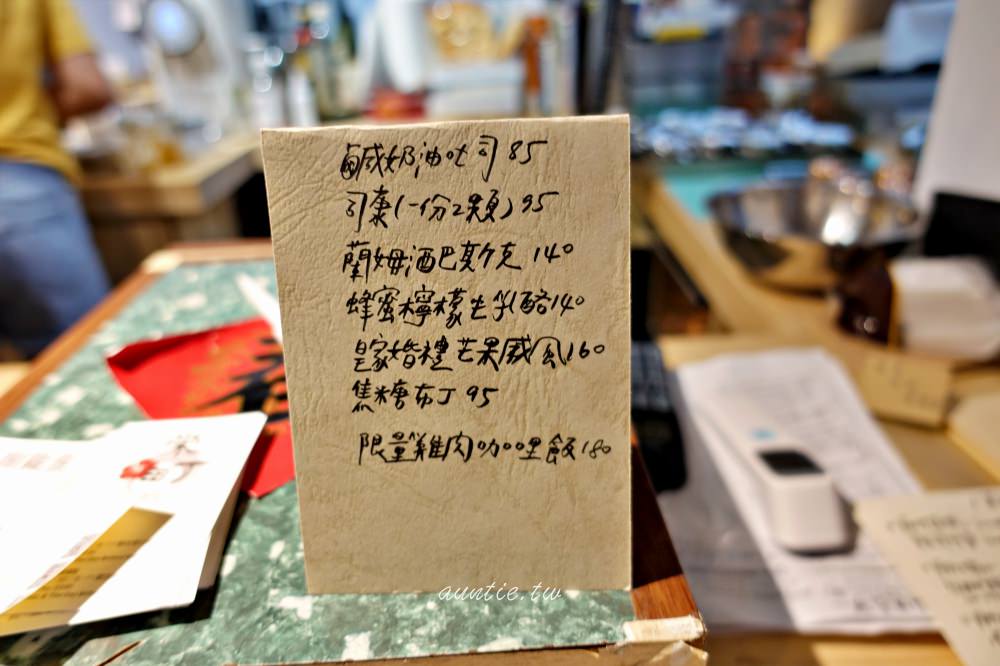 鹹奶油吐司 85
司康(一份2顆) 95
蘭姆酒巴斯克 140
蜂蜜檸檬生乳酪 140
皇家婚禮芒果戚風 160
焦糖布丁 95
限量雞肉咖哩飯 180
auntie.tw